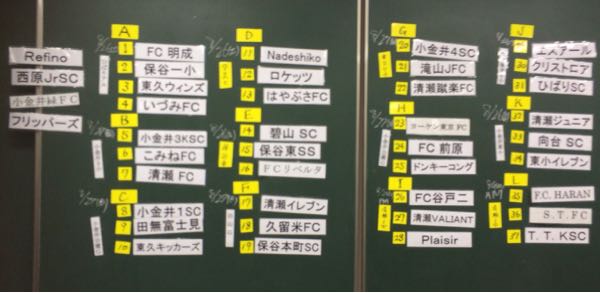 Refino
西原JrSC
小金井緑FC
フリッパーズ
A
1 FC 明成
2 保谷一小
3 東久ウィンズ
4 いづみFC
B
5 小金井3KSC
6 こみねFC
7 清瀬 FC
C
8 小金井1SC
9 田無富士見
10 東久キッカーズ
D
11 Nadeshiko
12 ロケッツ
13 はやぶさFC
E
14 碧山 SC
15 保谷東SS
16 FCリベルタ
F
17 清瀬イレブン
18 久留米FC
19 保谷本町SC
G
20 小金井4SC
21 滝山JFC
22 清瀬蹴楽FC
H
23 ヨーケン東京FC
24 FC 前原
25 ドンキーコング
I
26 FC谷戸二
27 清瀬VALIANT
28 Plaisir
J
エスアール
30 クリストロア
31 ひばりSC
K
32 清瀬ジュニア
33 向台 SC
34 東小イレブン
L
35 F.C. HARAN
36 S.T.FC
37 T.T.KSC